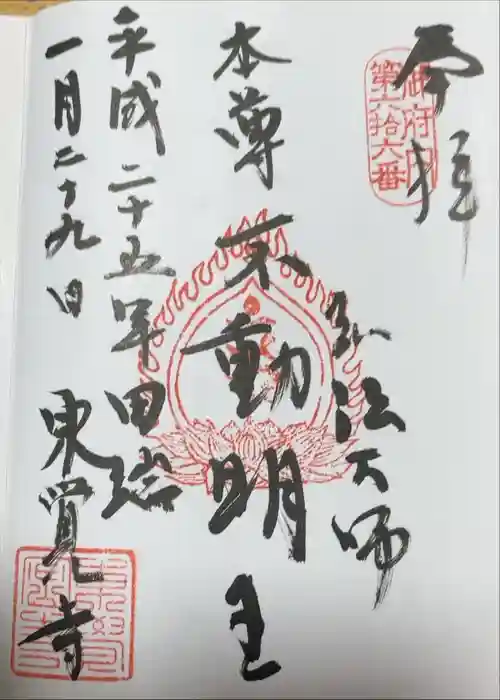 奉拝
御府内
第六拾六番
弘法大師
本尊 不動明王
平成二十五年田端
一月二十九日 東覚寺